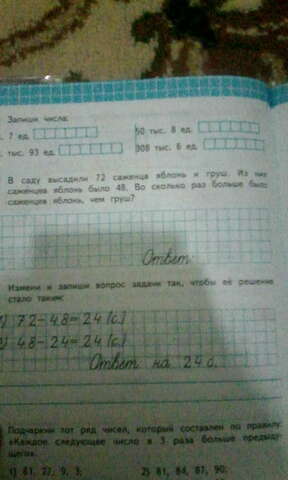 Запиши числа:
7 ед. 50 тыс. 8 ед.
тыс. 93 ед. 308 тыс. 6 ед.
В саду высадили 72 саженца яблонь и груш. Из них
саженцев яблонь было 48. Во сколько раз больше было
саженцев яблонь, чем груш?
Ответ
Измени и запиши вопрос задачи так, чтобы её решение
стало таким:
1) 72-48=24(с.)
2) 48-24=24(с.)
Ответ на 24 с.
Подчеркни тот ряд чисел, который составлен по правилу:
«Каждое следующее число в 3 раза больше предыду-
щего».
1) 81, 27, 9, 3; 2) 81, 84, 87, 90;